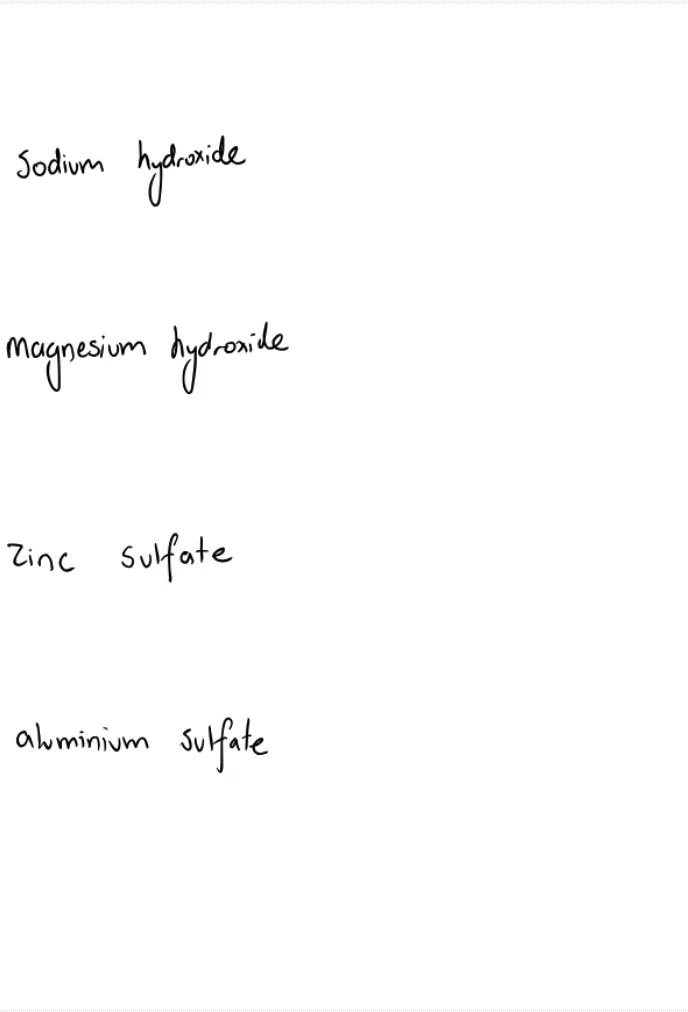 Sodium hydroxide
Magnesium hydroxide
Zinc sulfate
aluminium sulfate